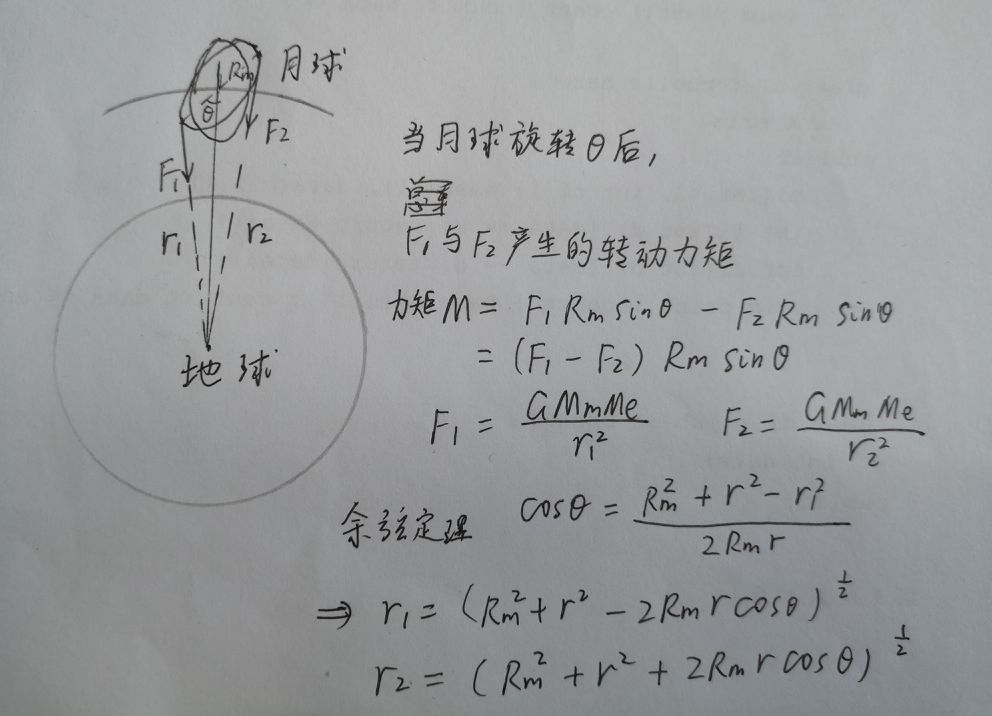 月球
Rm
θ
F₁
F₂
r₁
r₂
地球
当月球旋转θ后,
F₁与F₂产生的转动力矩
力矩M = F₁ Rm sinθ - F₂ Rm sinθ
= (F₁ - F₂) Rm sinθ
F₁ = GMmMe / r₁² F₂ = GMmMe / r₂²
余弦定理 cosθ = (Rm² + r² - r₁²) / 2Rmr
⇒ r₁ = (Rm² + r² - 2Rmrcosθ)^½
r₂ = (Rm² + r² + 2Rmrcosθ)^½